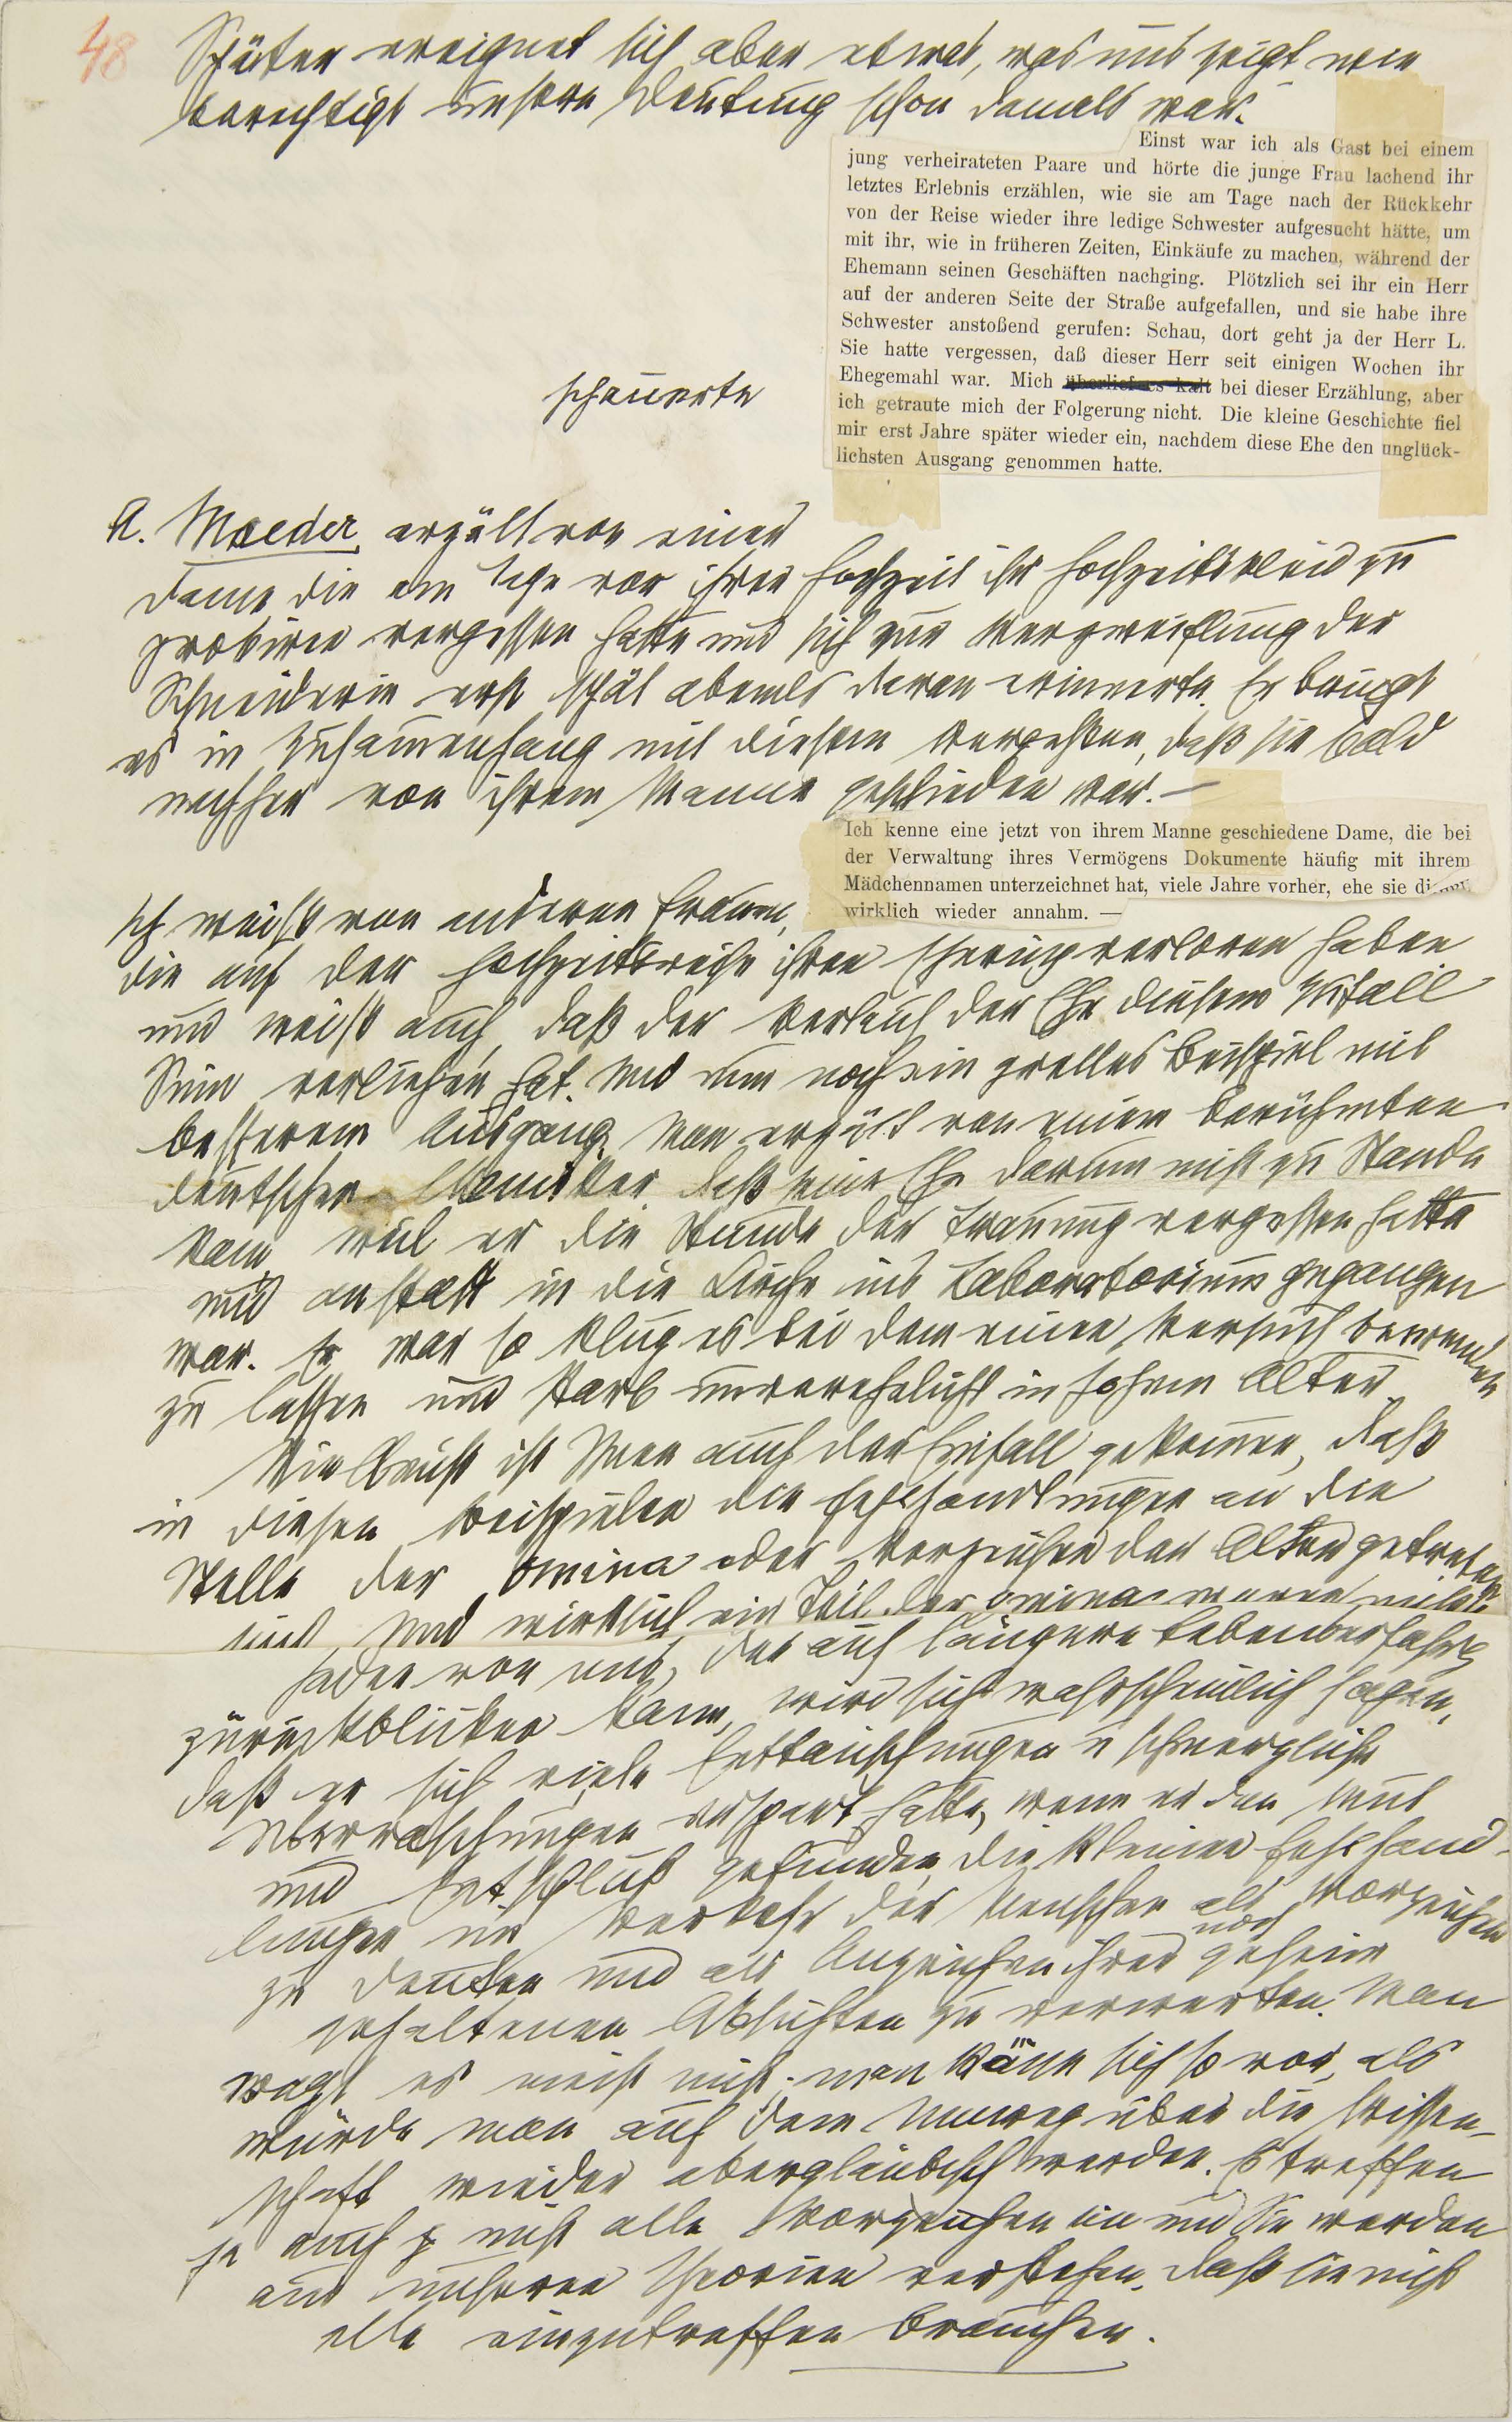 48
Später ereignet sich aber etwas, was uns zeigt wie
berechtigt unsere Deutung schon damals war.
Einst war ich als Gast bei einem
jung verheirateten Paare und hörte die junge Frau lachend ihr
letztes Erlebnis erzählen, wie sie am Tage nach der Rückkehr
von der Reise wieder ihre ledige Schwester aufgesucht hätte, um
mit ihr, wie in früheren Zeiten, Einkäufe zu machen, während der
Ehemann seinen Geschäften nachging. Plötzlich sei ihr ein Herr
auf der anderen Seite der Straße aufgefallen, und sie habe ihre
Schwester anstoßend gerufen: Schau, dort geht ja der Herr L.
Sie hatte vergessen, daß dieser Herr seit einigen Wochen ihr
Ehegemahl war. Mich überlief es kalt bei dieser Erzählung, aber
schauerte
ich getraute mich der Folgerung nicht. Die kleine Geschichte fiel
mir erst Jahre später wieder ein, nachdem diese Ehe den unglück-
lichsten Ausgang genommen hatte.
A. Maeder erzält von einer
Dame die am Tage vor ihrer Hochzeit ihr Hochzeitskleid zu
probiren vergessen hatte und sich zur Verzweiflung der
Schneiderin erst spät abends daran erinnerte. Er bringt
es in Zusam̄enhang mit diesem Vergessen, daß sie bald
nachher von ihrem Manne geschieden war. –
Ich kenne eine jetzt von ihrem Manne geschiedene Dame, die bei
der Verwaltung ihres Vermögens Dokumente häufig mit ihrem
Mädchennamen unterzeichnet hat, viele Jahre vorher, ehe sie diesen
wirklich wieder annahm. —
Ich weiß von anderen Frauen,
die auf der Hochzeitsreise ihren Ehering verloren haben
und weiß auch, daß der Verlauf der Ehe diesem Zufall
Sinn verliehen hat. Und nun noch ein grelles Beispiel mit
besserem Ausgang. Man erzält von einem berühmten
deutschen Chemiker daß seine Ehe darum nicht zu Stande
kam, weil er die Stunde der Trauung vergessen hatte
und anstatt in die Kirche ins Laboratorium gegangen
war. Er war so klug es bei dem einen Versuch bewenden
zu lassen und starb unverehelicht in hohem Alter.
Vielleicht ist Ihnen auch der Einfall gekom̄en, daß
in diesen Beispielen die Fehlhandlungen an die
Stelle der Omina oder Vorzeichen der Alten getreten
sind. Und wirklich ein Teil der Omina waren nichts
Jeder von uns, der auf längere Lebenserfahrg
zurückblicken kann, wird sich wahrscheinlich sagen,
daß er sich viele Enttäuschungen u schmerzliche
Überraschungen erspart hätte, wenn er den Mut
und Entschluß gefunden, die kleinen Fehlhand-
lungen im Verkehr der Menschen als Vorzeichen
zu deuten und als Anzeichen ihrer noch geheim
gehaltenen Absichten zu verwerten. Man
wagt es meist nicht; man käme sich so vor, als
würde man auf dem Umweg über die Wissen-
schaft wieder abergläubisch werden. Es treffen
ja auch nicht alle Vorzeichen ein und Sie werden
aus unseren Theorien verstehen, daß sie nicht
alle einzutreffen brauchen.